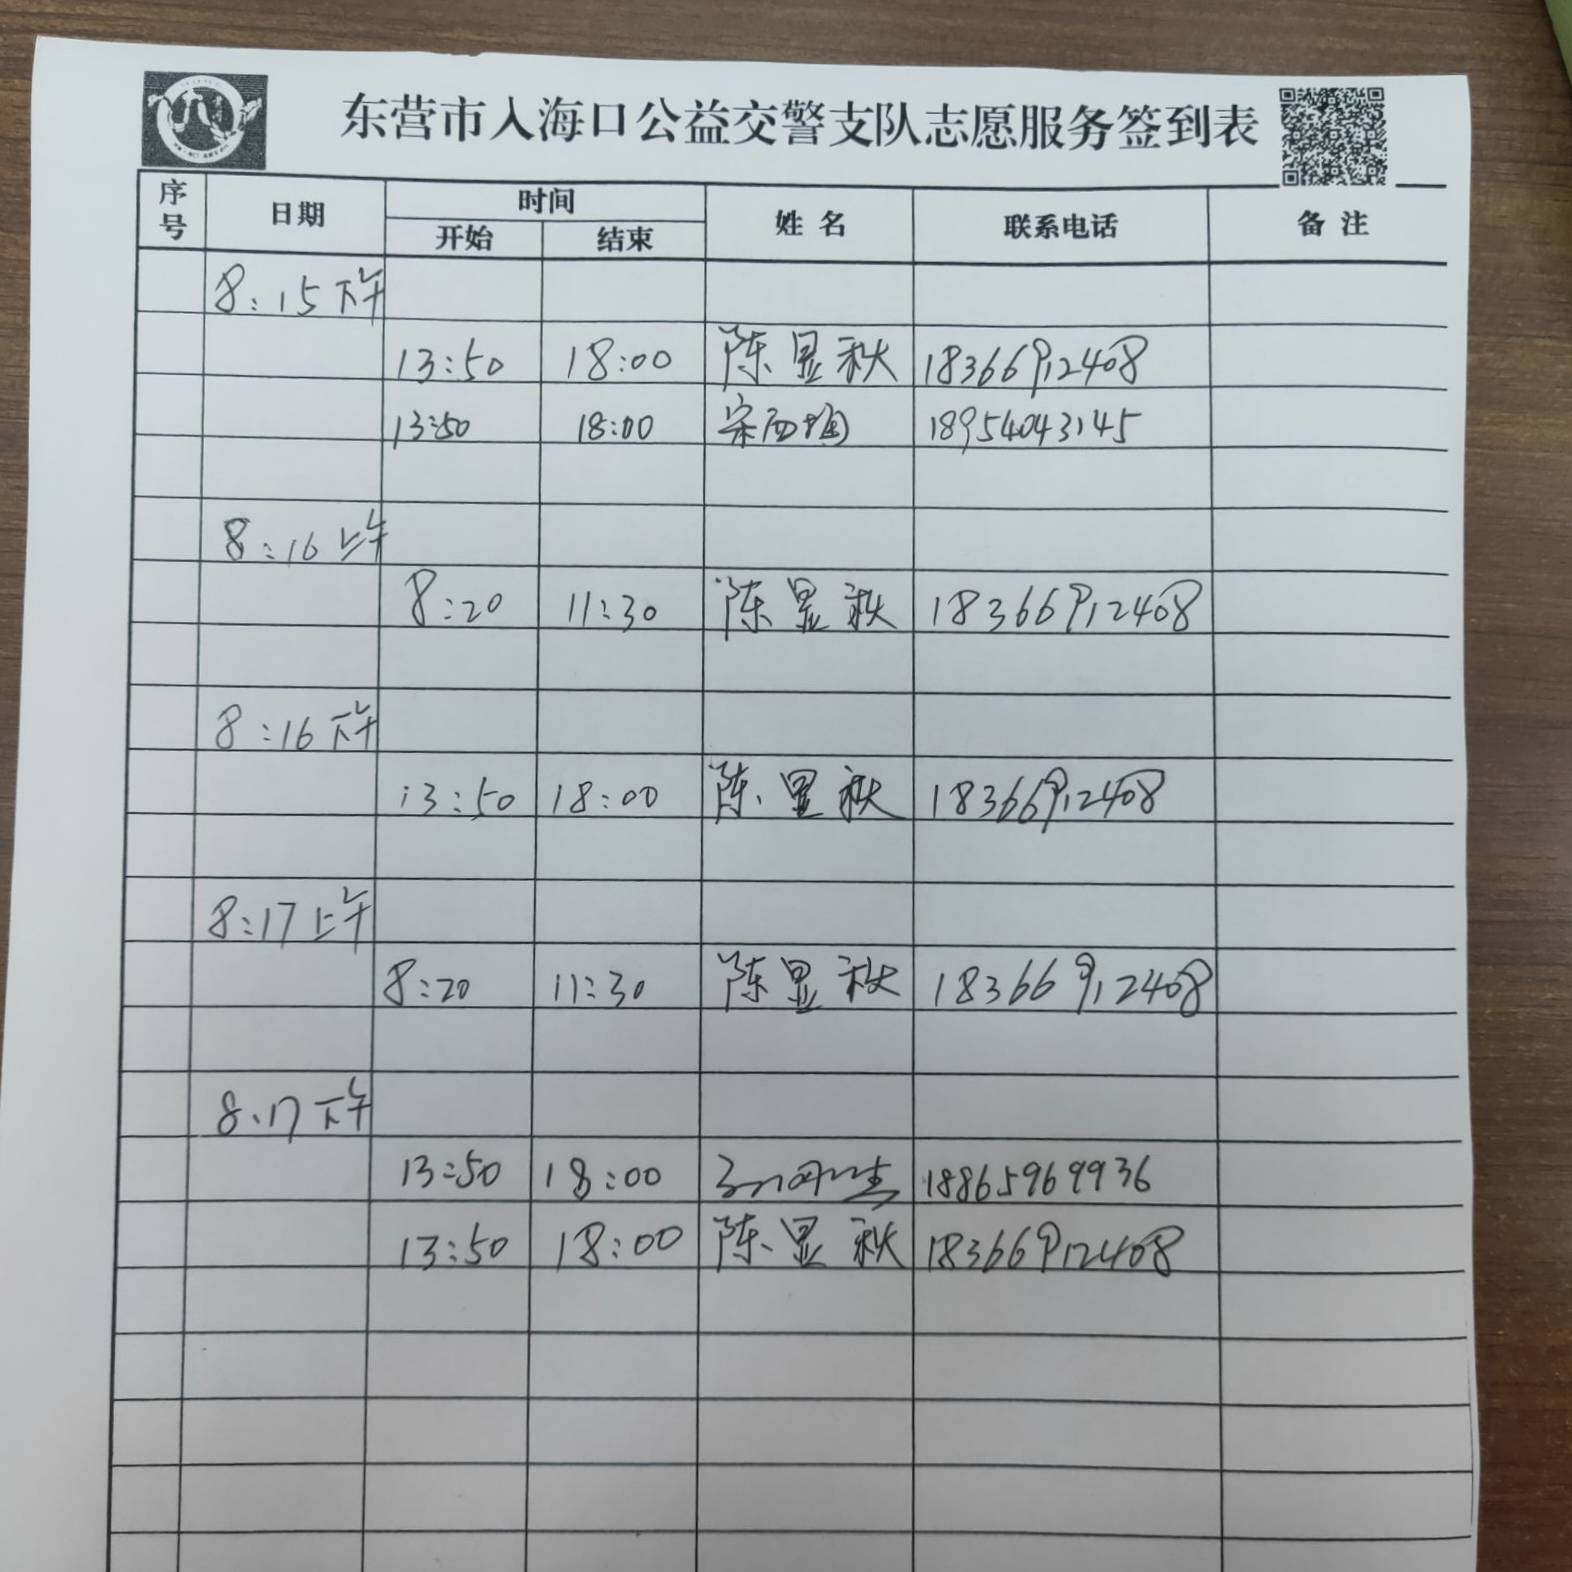 东营市入海口公益交警支队志愿服务签到表
序号 日期 时间 姓名 联系电话 备注
开始 结束
8:15下午
13:50 18:00 陈显秋 18366912408
13:50 18:00 18954043145
8:16上午
8:20 11:30 陈显秋 18366912408
8:16下午
13:50 18:00 陈显秋 18366912408
8:17上午
8:20 11:30 陈显秋 18366912408
8.17下午
13:50 18:00 18865969936
13:50 18:00 陈显秋 18366912408